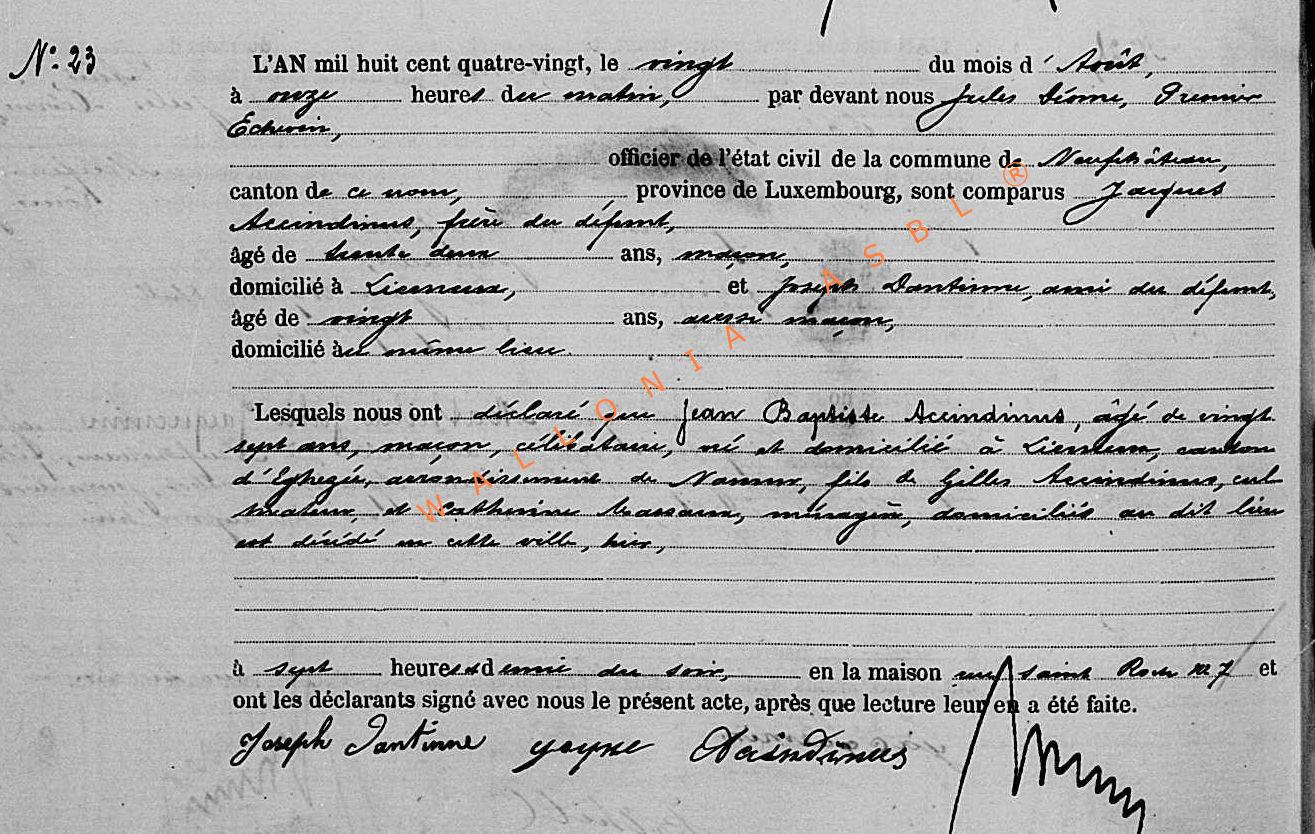 N° 23
L'AN mil huit cent quatre-vingt, le vingt du mois d'Août,
à onze heures du matin, par devant nous Jules Premier
Echevin,
officier de l'état civil de la commune de Neufchâteau,
canton de ce nom, province de Luxembourg, sont comparus Jacques
Accindinus, frère du défunt,
âgé de trente deux ans, maçon,
domicilié à Liernu, et Joseph Dantinne, ami du défunt,
âgé de vingt ans, aussi maçon,
domicilié au même lieu.
Lesquels nous ont déclaré que Jean Baptiste Accindinus, âgé de vingt
sept ans, maçon, célibataire, né et domicilié à Liernu, canton
d'Eghezée, arrondissement de Namur, fils de Gilles Accindinus, cul
tivateur, et Catherine ménagère, domiciliés au dit lieu
est décédé en cette ville, hier,
à sept heures et demie du soir, en la maison rue Saint Roch n° 7 et
ont les déclarants signé avec nous le présent acte, après que lecture leur en a été faite.
Joseph Dantinne Accindinus
WALLONIA ASBL ®